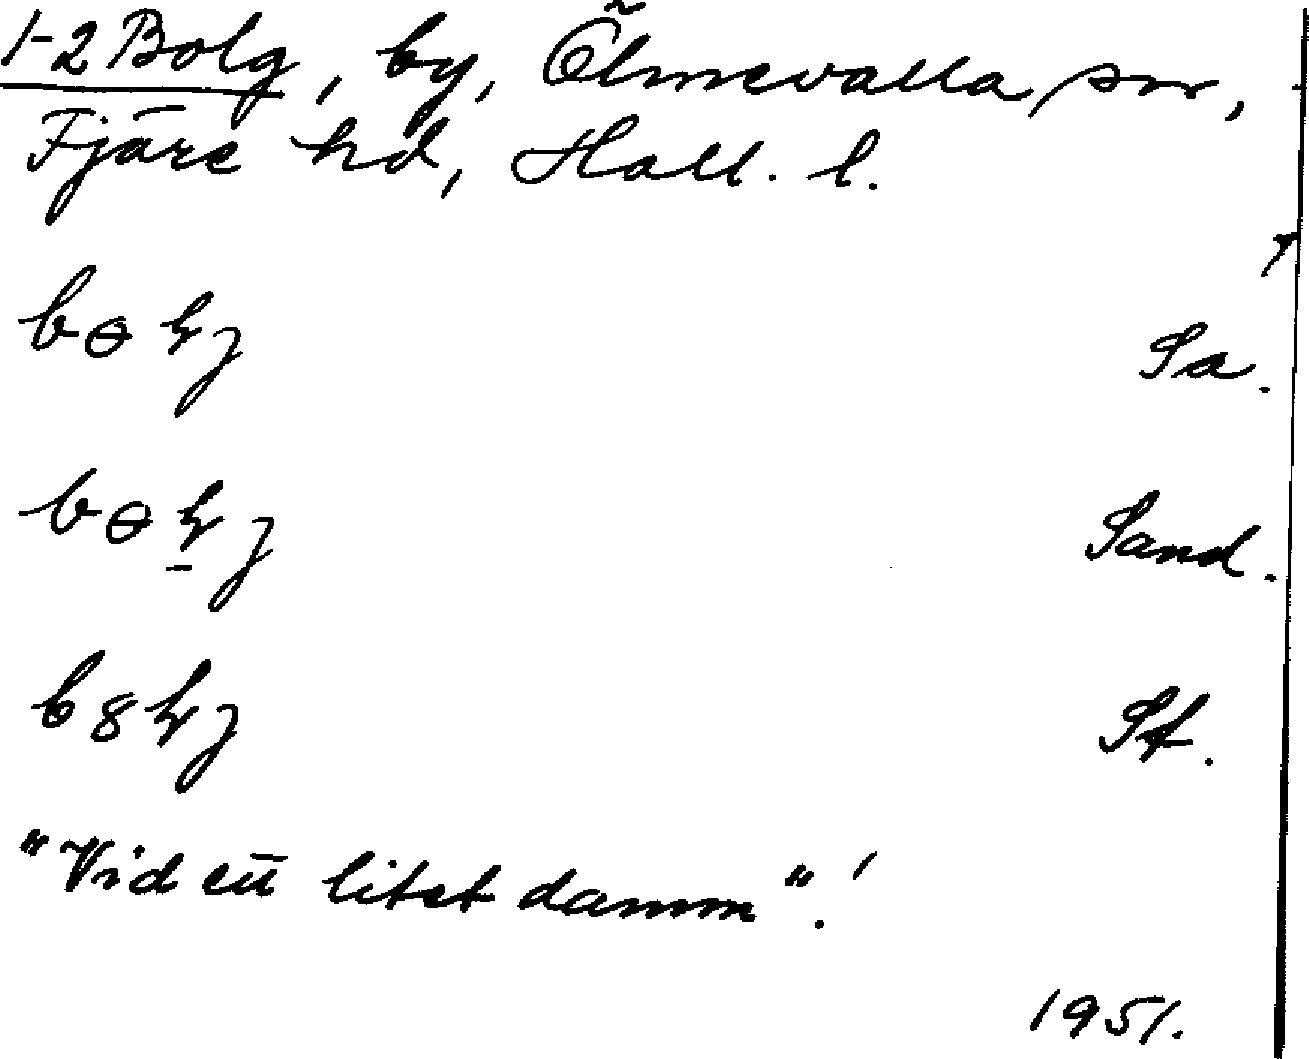 1-2 Bolg, by, Ölmevalla sn,
Fjäre hd, Hall. l.
bɵꝇj Sa.
bɵꝇj Sand.
b8ꝇj St.
"Vid ett litet damm".
1951.